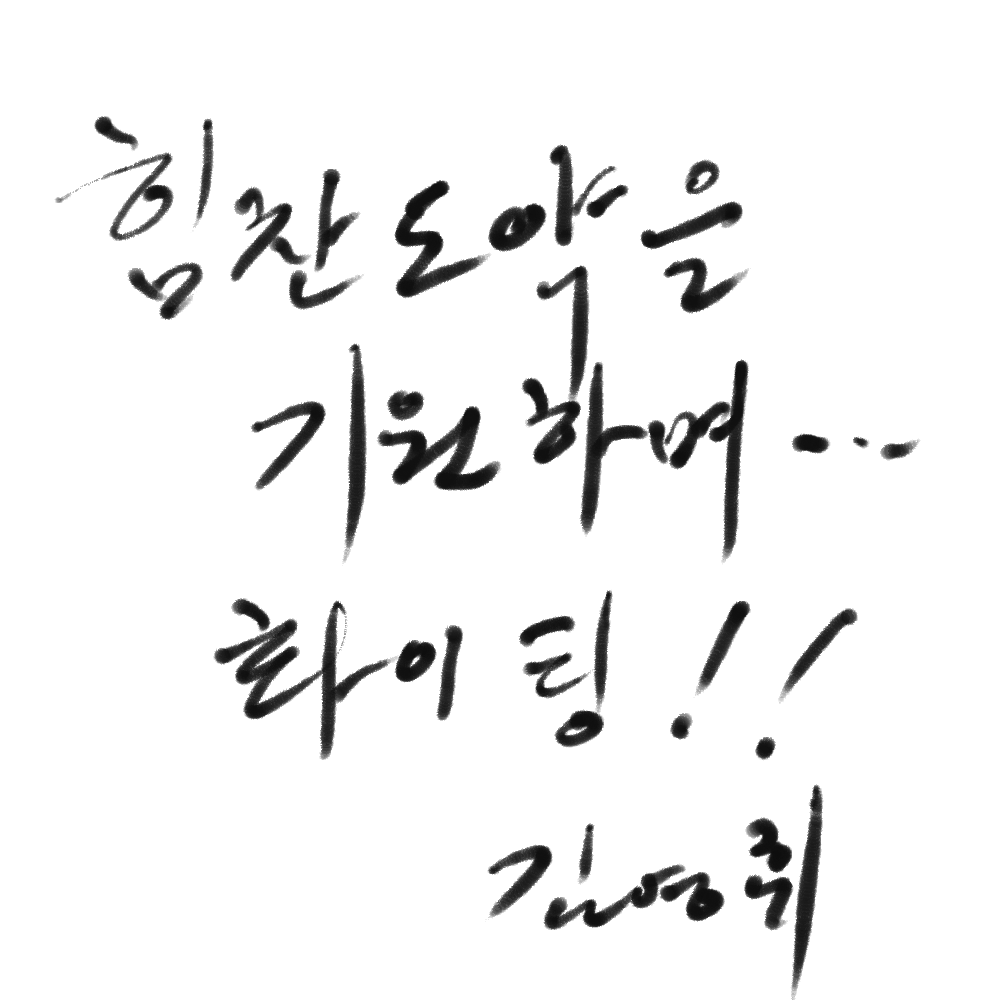 힘찬 도약을
기원하며...
화이팅!!